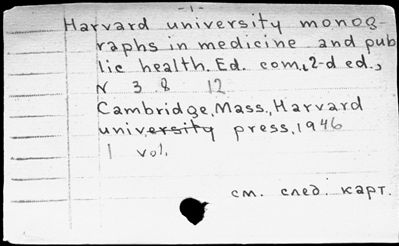 -1-
Harvard university monog-
raphs in medicine and pub
lic health. Ed. com., 2-d ed.,
N 3 8 12
Cambridge, Mass., Harvard
university press, 1946
1 vol.
см. след. карт.